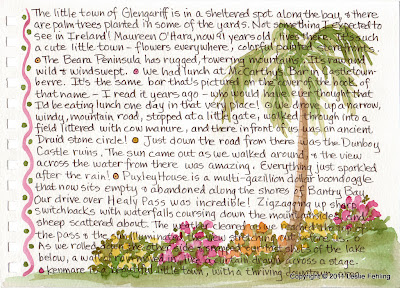 The little town of Glengariff is in a sheltered spot along the bay, & there
are palm trees planted in some of the yards. Not something I expected to
see in Ireland! Maureen O'Hara, now 91 years old, lives here. It's such
a cute little town - flowers everywhere, colorful painted
The Beara Peninsula has rugged, towering mountains. It's rainy,
wild & windswept. We had lunch at MacCarthy's Bar in Castletown-
berre. It's the same bar that's pictured on the cover of the book by
that name - I read it years ago - who would have thought that
I'd be eating lunch one day in that very place! up a narrow,
windy, mountain road, stopped at a little gate, walked through into a
field littered with cow manure, and there in front of us was an ancient
Druid stone circle! Just down the road from there was the Dunboy
Castle ruins. The sun came out as we walked around, & the view
across the water from there was amazing. Everything just sparkled
after the rain! Puxley House is a multi-gazillion dollar boondoggle
that now sits empty & abandoned along the shores of Bantry Bay.
Our drive over Healy Pass was incredible! Zigzagging up
switchbacks with waterfalls coursing down the mountainside and
sheep scattered about. The sky cleared as we
the pass & the sun illuminated
As we rolled down the other side of the lake
below, a drawn across a stage.
Kenmare is a beautiful little town, with a thriving downtown
Copyright © 2011 Leslie Fehling